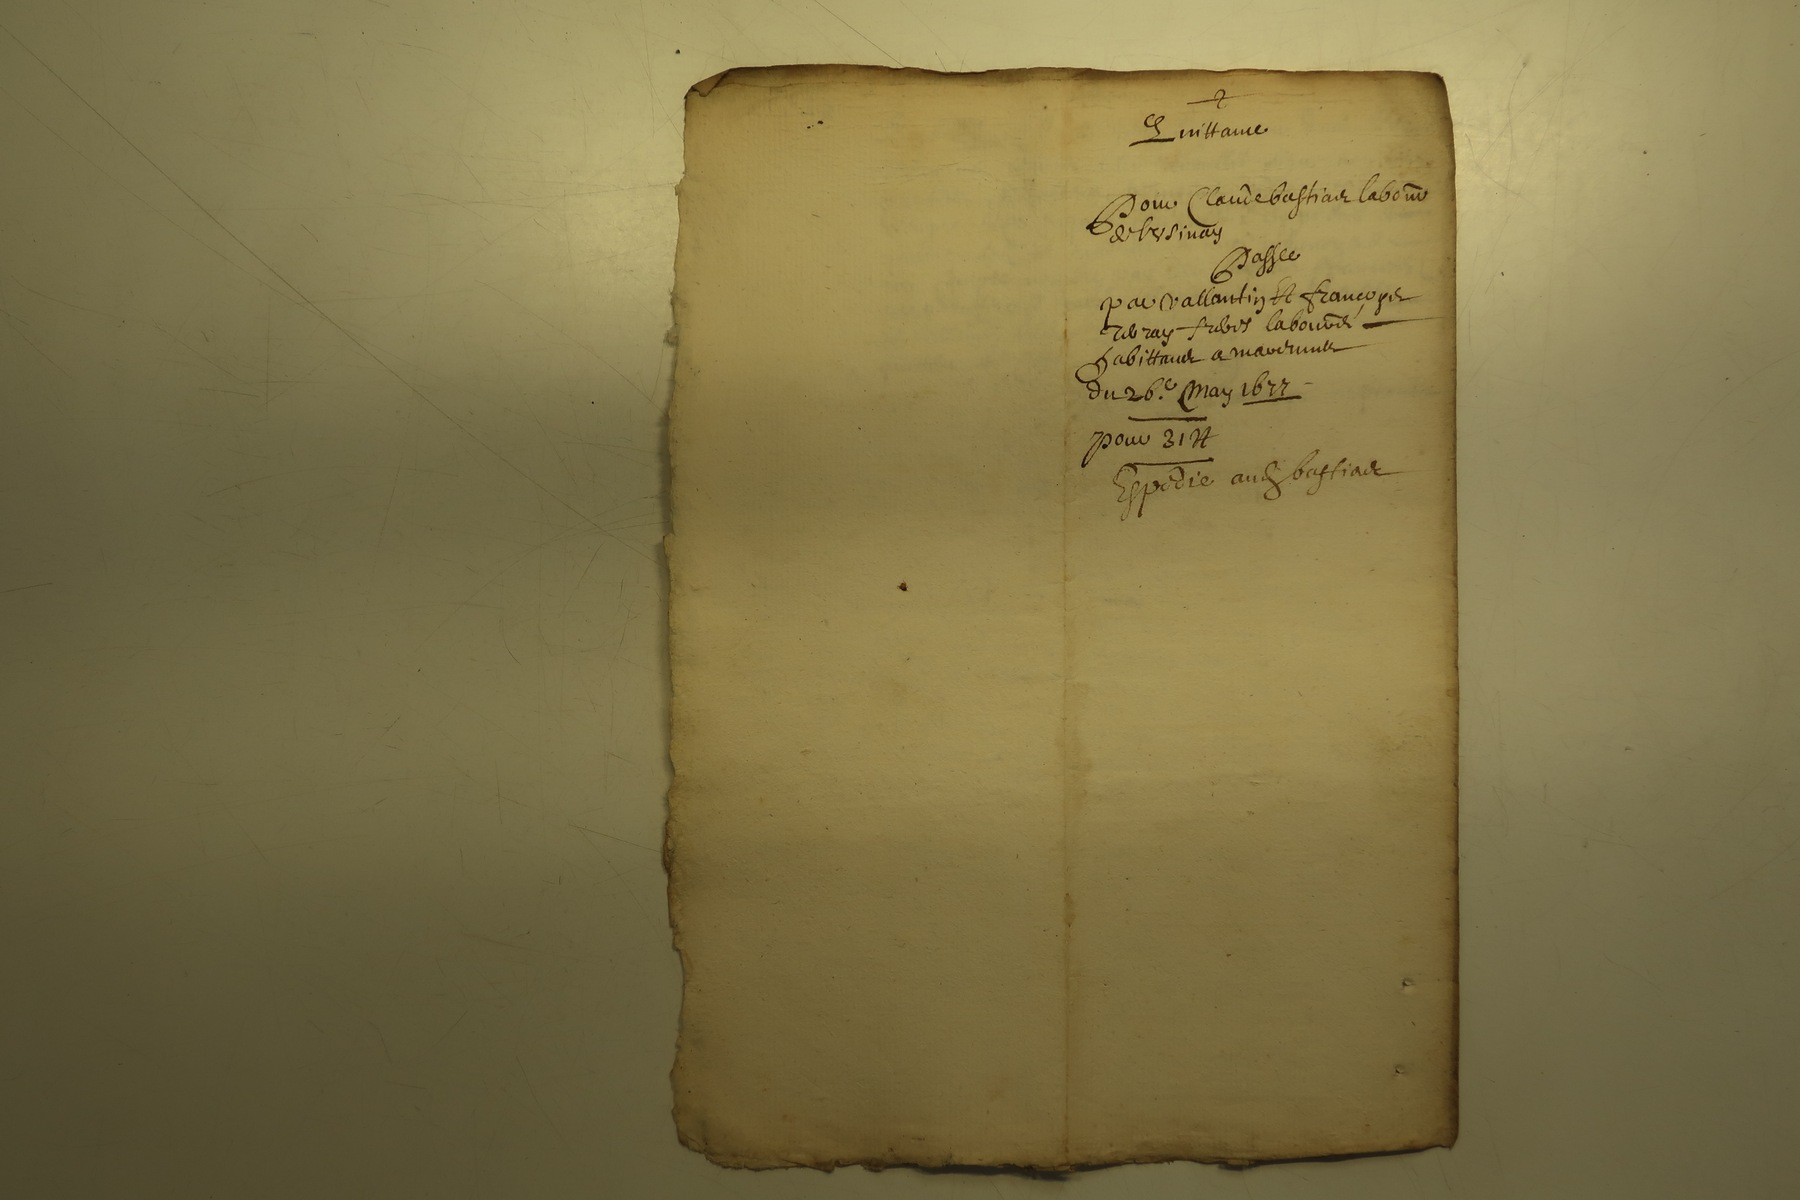 Quittance
Pour Claude bastian labour
de bersinay
Passee
par Vallantin et françois
freres laboureurs
habittant a
du 26.e May 1677
pour 31 tt
Expedie audit bastian